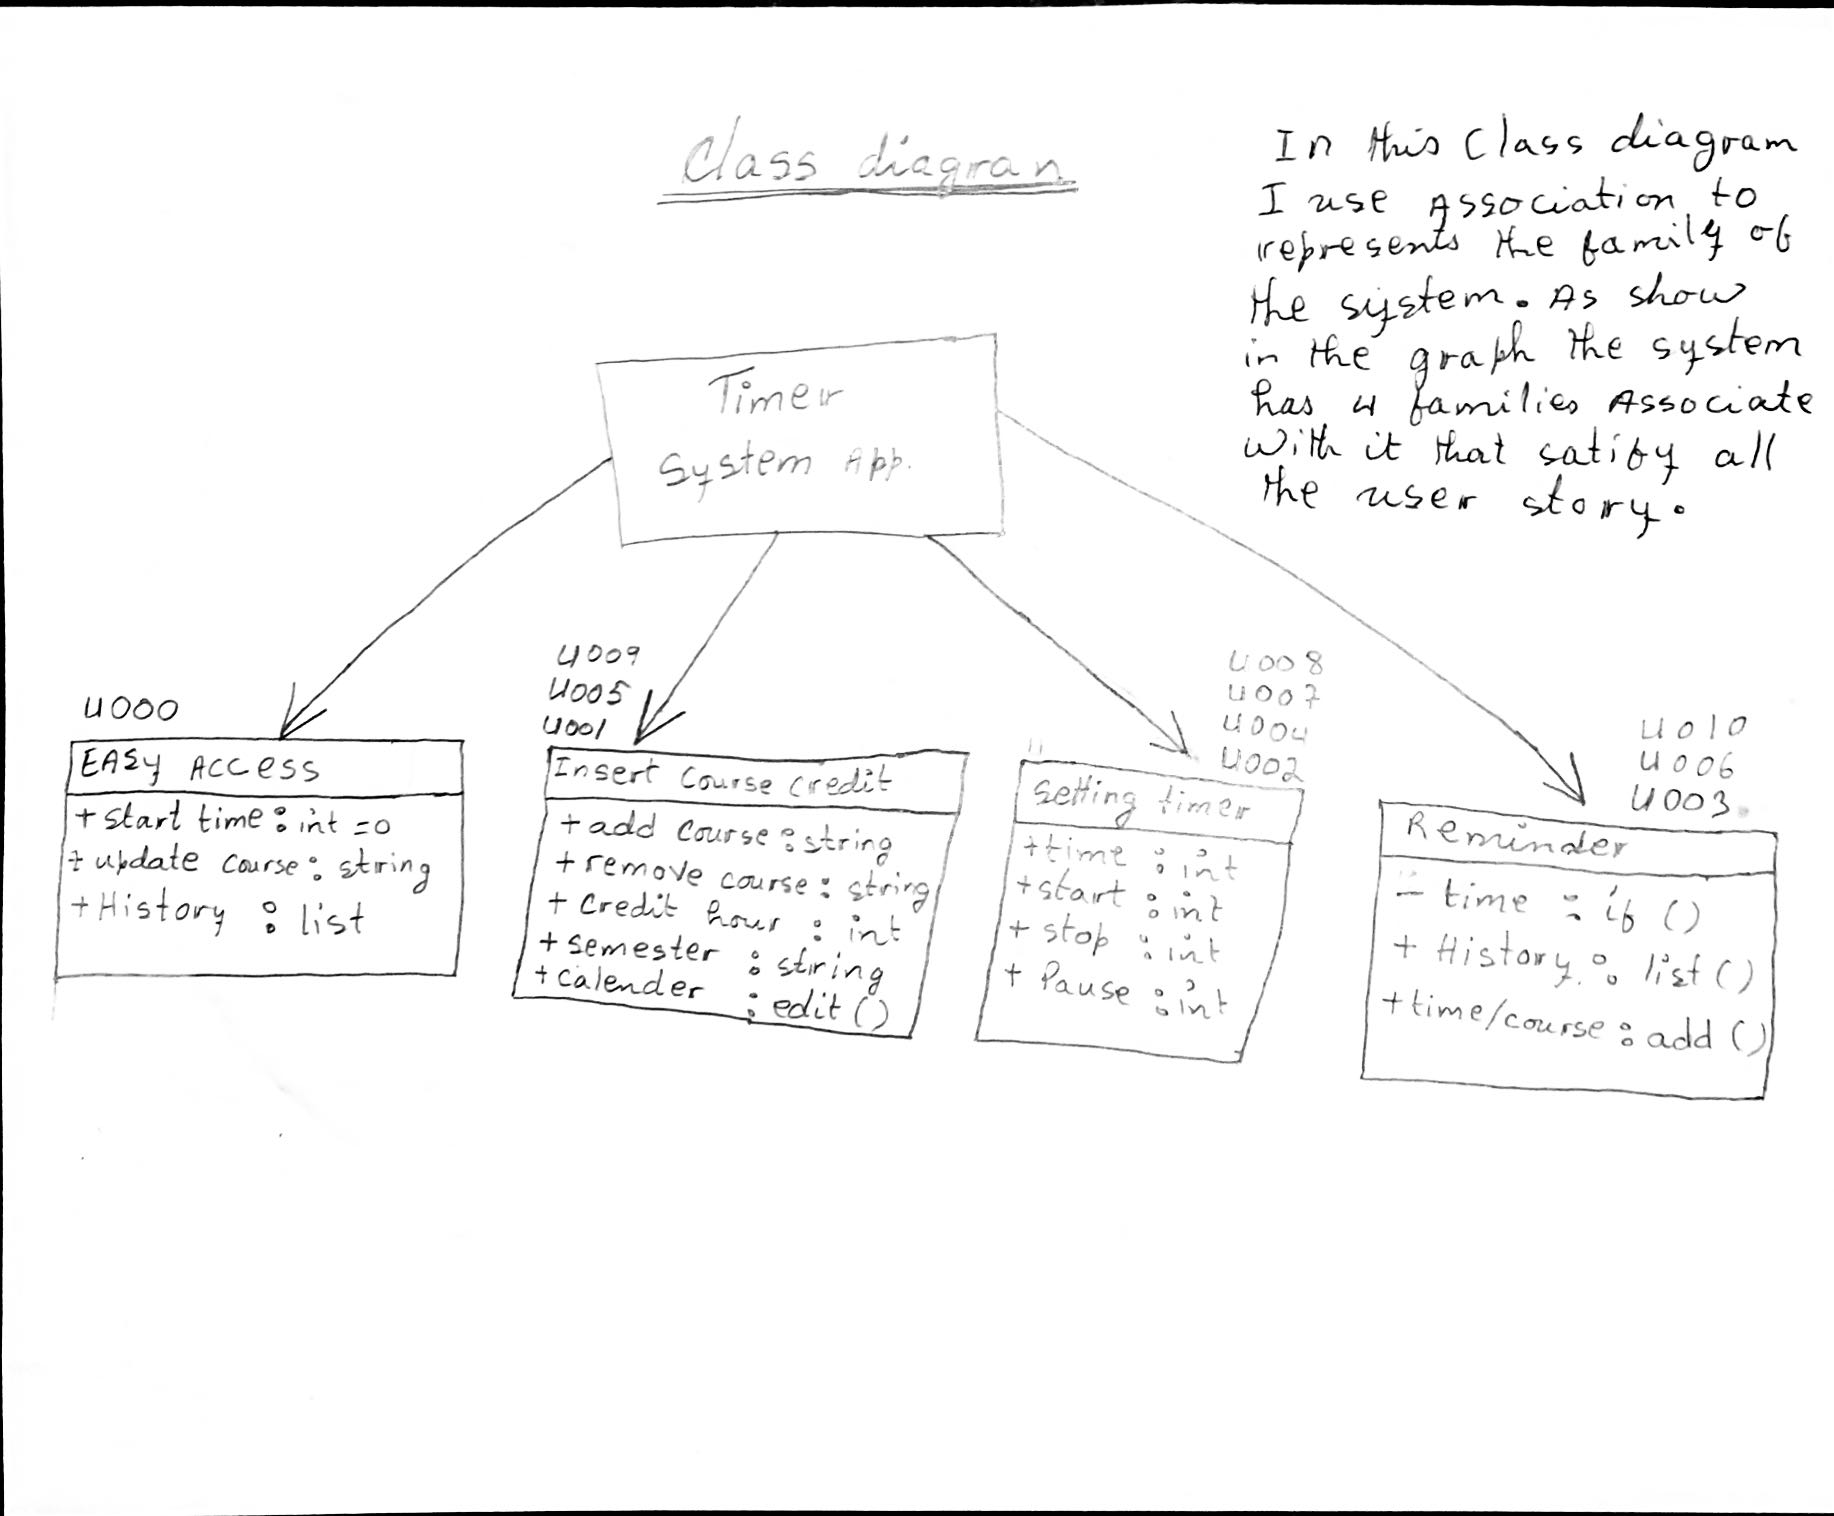 Class diagran
In this Class diagram
I use Association to
represents the family of
the system. As show
in the graph the system
has 4 families Associate
with it that satify all
the user story.
Timer
System App.
U000
EASY ACCESS
+ start time : int = 0
+ update course : string
+ History : list
U009
U005
U001
Insert Course Credit
+ add course : string
+ remove course : string
+ Credit hour : int
+ semester : string
+ calender : edit ()
U008
U007
U004
U002
Setting timer
+ time : int
+ start : int
+ stop : int
+ Pause : int
U010
U006
U003
Reminder
- time : if ()
+ History : list ()
+ time/course : add ()